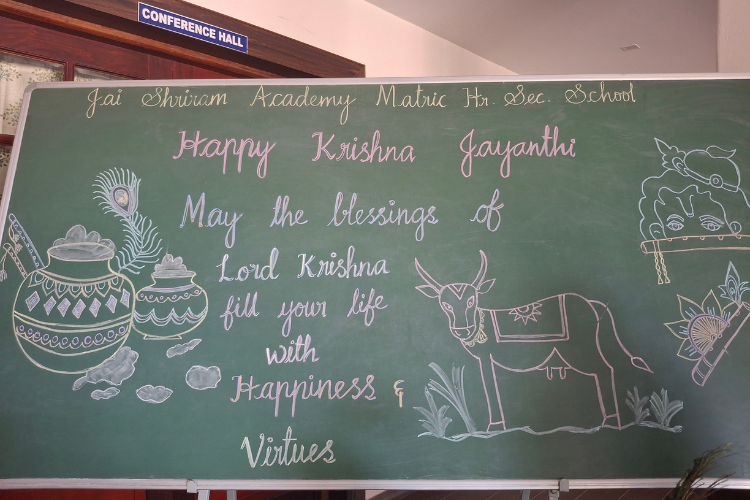 CONFERENCE HALL
Jai Shriram Academy Matric Hr. Sec. School
Happy Krishna Jayanthi
May the blessings of
Lord Krishna
fill your life
with
Happiness &
Virtues